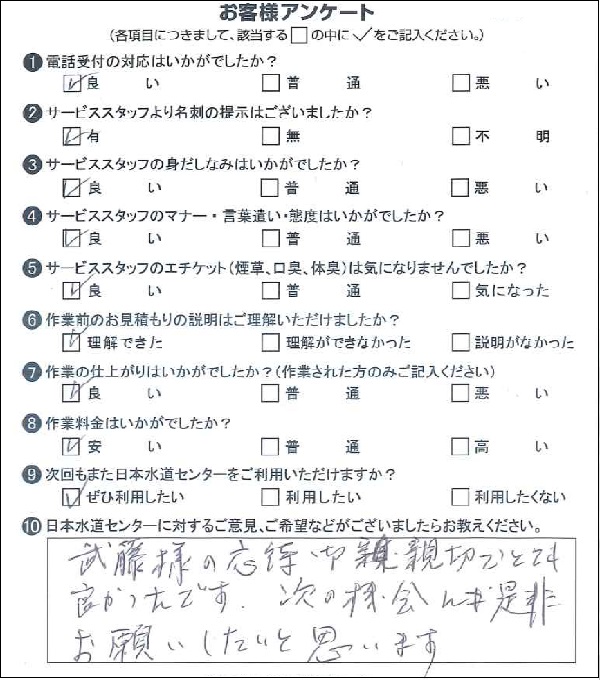 お客様アンケート
(各項目につきまして、該当する□の中に✓をご記入ください。)
❶ 電話受付の対応はいかがでしたか?
☑良い □普通 □悪い
❷ サービススタッフより名刺の提示はございましたか?
☑有 □無 □不明
❸ サービススタッフの身だしなみはいかがでしたか?
☑良い □普通 □悪い
❹ サービススタッフのマナー・言葉遣い・態度はいかがでしたか?
☑良い □普通 □悪い
❺ サービススタッフのエチケット(煙草、口臭、体臭)は気になりませんでしたか?
☑良い □普通 □気になった
❻ 作業前のお見積もりの説明はご理解いただけましたか?
☑理解できた □理解ができなかった □説明がなかった
❼ 作業の仕上がりはいかがでしたか?(作業された方のみご記入ください)
☑良い □普通 □悪い
❽ 作業料金はいかがでしたか?
☑安い □普通 □高い
❾ 次回もまた日本水道センターをご利用いただけますか?
☑ぜひ利用したい □利用したい □利用したくない
❿ 日本水道センターに対するご意見、ご希望などがございましたらお教えください。
武藤様の応待が親切でとても
良かったです。次の機会にも是非
お願いしたいと思います